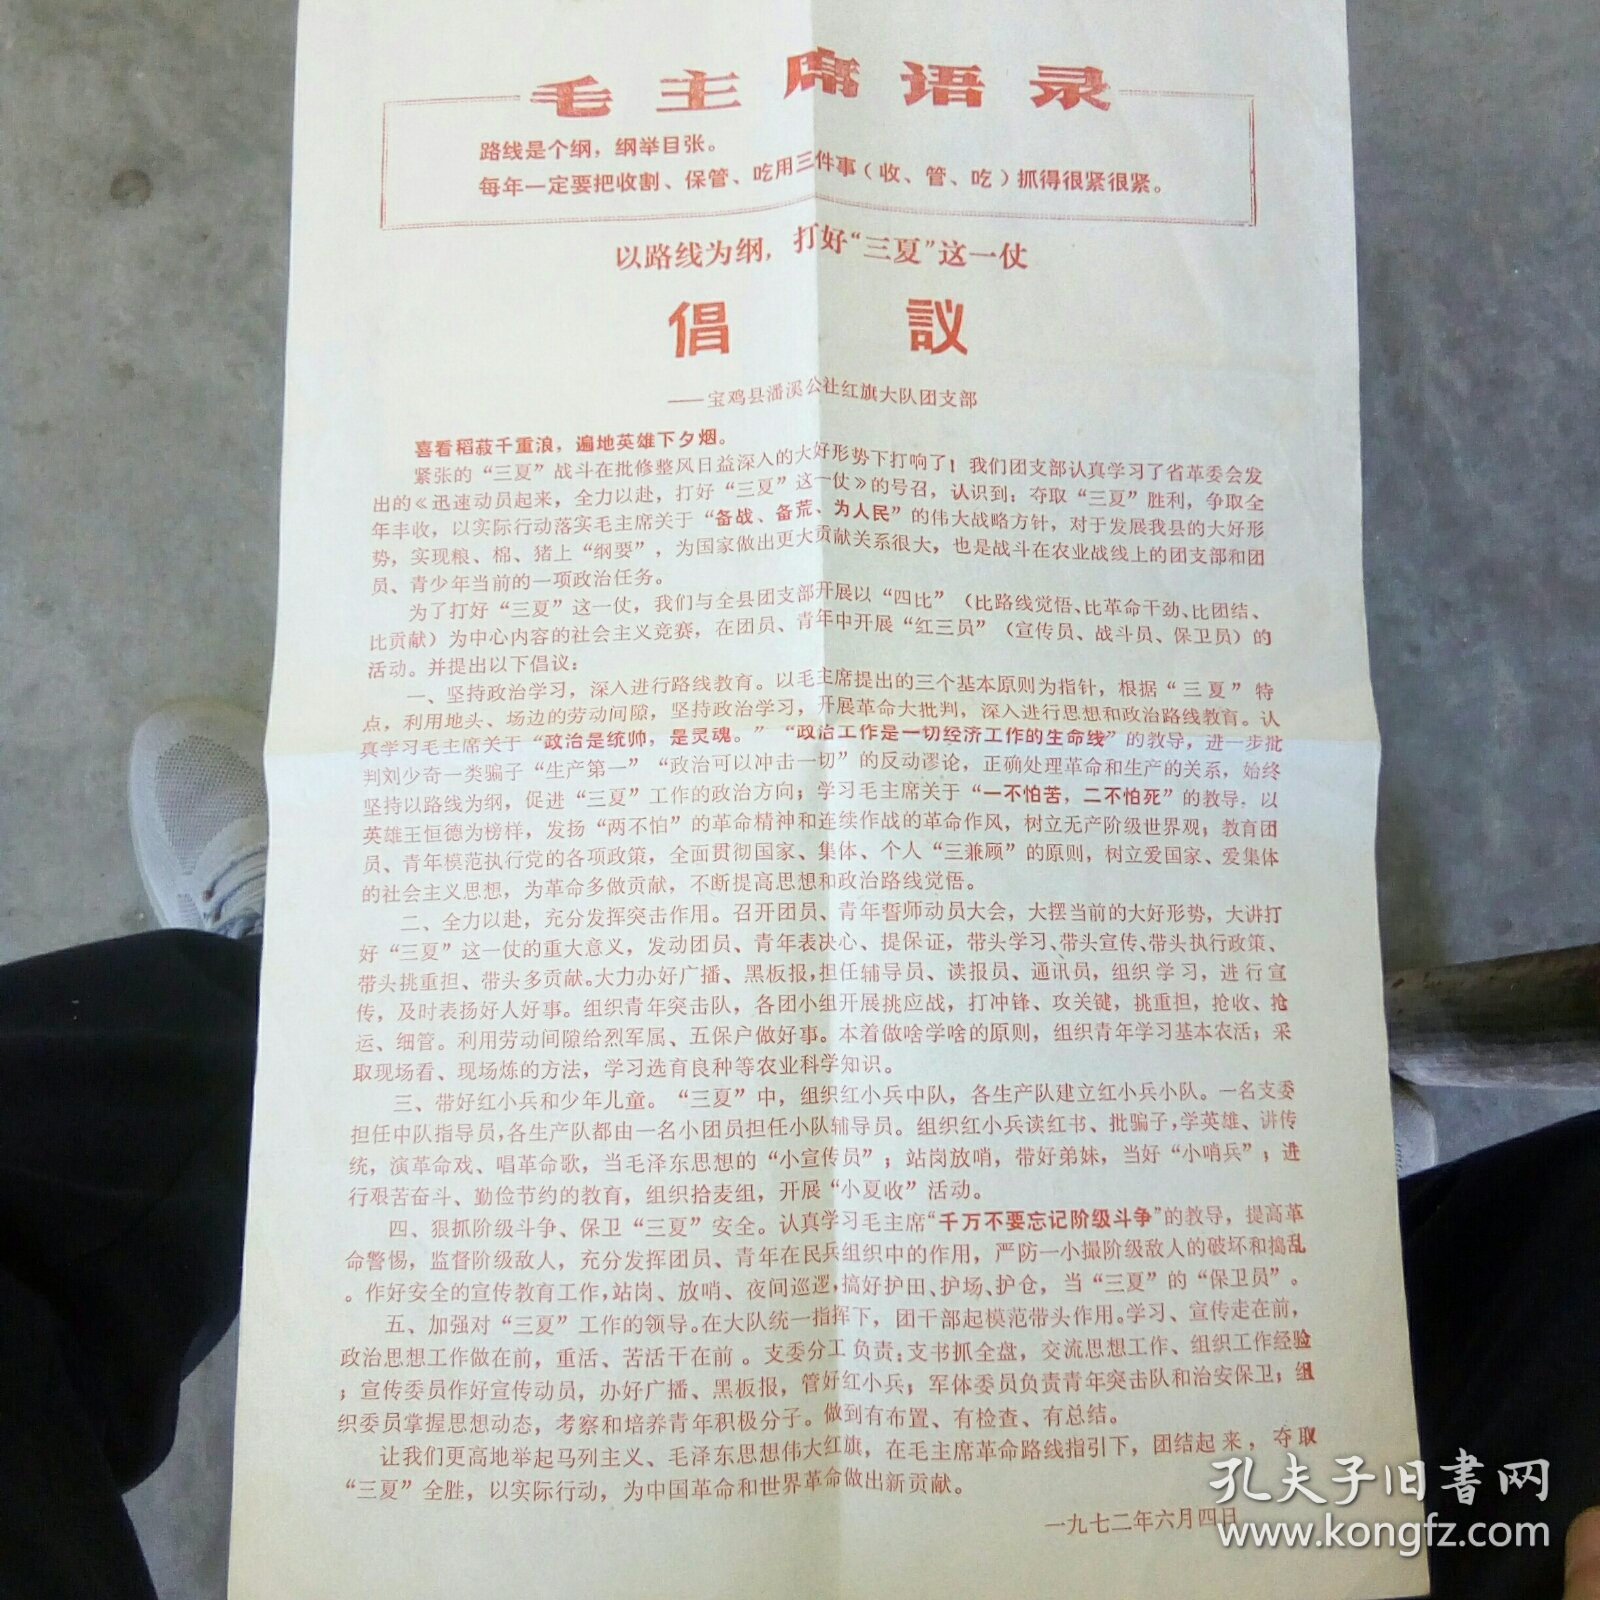 毛主席语录
路线是个纲，纲举目张。
每年一定要把收割、保管、吃用三件事（收、管、吃）抓得很紧很紧。
以路线为纲，打好“三夏”这一仗
倡议
——宝鸡县潘溪公社红旗大队团支部
喜看稻菽千重浪，遍地英雄下夕烟。
紧张的“三夏”战斗在批修整风日益深入的大好形势下打响了！我们团支部认真学习了省革委会发
出的《迅速动员起来，全力以赴，打好“三夏”这一仗》的号召，认识到：夺取“三夏”胜利，争取全
年丰收，以实际行动落实毛主席关于“备战、备荒、为人民”的伟大战略方针，对于发展我县的大好形
势，实现粮、棉、猪上“纲要”，为国家做出更大贡献关系很大，也是战斗在农业战线上的团支部和团
员、青少年当前的一项政治任务。
为了打好“三夏”这一仗，我们与全县团支部开展以“四比”（比路线觉悟、比革命干劲、比团结、
比贡献）为中心内容的社会主义竞赛，在团员、青年中开展“红三员”（宣传员、战斗员、保卫员）的
活动。并提出以下倡议：
一、坚持政治学习，深入进行路线教育。以毛主席提出的三个基本原则为指针，根据“三夏”特
点，利用地头、场边的劳动间隙，坚持政治学习，开展革命大批判，深入进行思想和政治路线教育。认
真学习毛主席关于“政治是统帅，是灵魂。”“政治工作是一切经济工作的生命线”的教导，进一步批
判刘少奇一类骗子“生产第一”“政治可以冲击一切”的反动谬论，正确处理革命和生产的关系，始终
坚持以路线为纲，促进“三夏”工作的政治方向；学习毛主席关于“一不怕苦，二不怕死”的教导，以
英雄王恒德为榜样，发扬“两不怕”的革命精神和连续作战的革命作风，树立无产阶级世界观；教育团
员、青年模范执行党的各项政策，全面贯彻国家、集体、个人“三兼顾”的原则，树立爱国家、爱集体
的社会主义思想，为革命多做贡献，不断提高思想和政治路线觉悟。
二、全力以赴，充分发挥突击作用。召开团员、青年誓师动员大会，大摆当前的大好形势，大讲打
好“三夏”这一仗的重大意义，发动团员、青年表决心、提保证，带头学习、带头宣传、带头执行政策、
带头挑重担、带头多贡献。大力办好广播、黑板报，担任辅导员、读报员、通讯员，组织学习，进行宣
传，及时表扬好人好事。组织青年突击队，各团小组开展挑应战，打冲锋、攻关键，挑重担，抢收、抢
运、细管。利用劳动间隙给烈军属、五保户做好事。本着做啥学啥的原则，组织青年学习基本农活；采
取现场看、现场炼的方法，学习选育良种等农业科学知识。
三、带好红小兵和少年儿童。“三夏”中，组织红小兵中队，各生产队建立红小兵小队。一名支委
担任中队指导员，各生产队都由一名小团员担任小队辅导员。组织红小兵读红书、批骗子，学英雄、讲传
统，演革命戏、唱革命歌，当毛泽东思想的“小宣传员”；站岗放哨，带好弟妹，当好“小哨兵”；进
行艰苦奋斗、勤俭节约的教育，组织拾麦组，开展“小夏收”活动。
四、狠抓阶级斗争、保卫“三夏”安全。认真学习毛主席“千万不要忘记阶级斗争”的教导，提高革
命警惕，监督阶级敌人，充分发挥团员、青年在民兵组织中的作用，严防一小撮阶级敌人的破坏和捣乱
。作好安全的宣传教育工作，站岗、放哨、夜间巡逻，搞好护田、护场、护仓，当“三夏”的“保卫员”。
五、加强对“三夏”工作的领导。在大队统一指挥下，团干部起模范带头作用。学习、宣传走在前，
政治思想工作做在前，重活、苦活干在前。支委分工负责：支书抓全盘，交流思想工作、组织工作经验
；宣传委员作好宣传动员，办好广播、黑板报，管好红小兵；军体委员负责青年突击队和治安保卫；组
织委员掌握思想动态，考察和培养青年积极分子。做到有布置、有检查、有总结。
让我们更高地举起马列主义、毛泽东思想伟大红旗，在毛主席革命路线指引下，团结起来，夺取
“三夏”全胜，以实际行动，为中国革命和世界革命做出新贡献。
一九七二年六月四日
孔夫子旧书网
www.kongfz.com